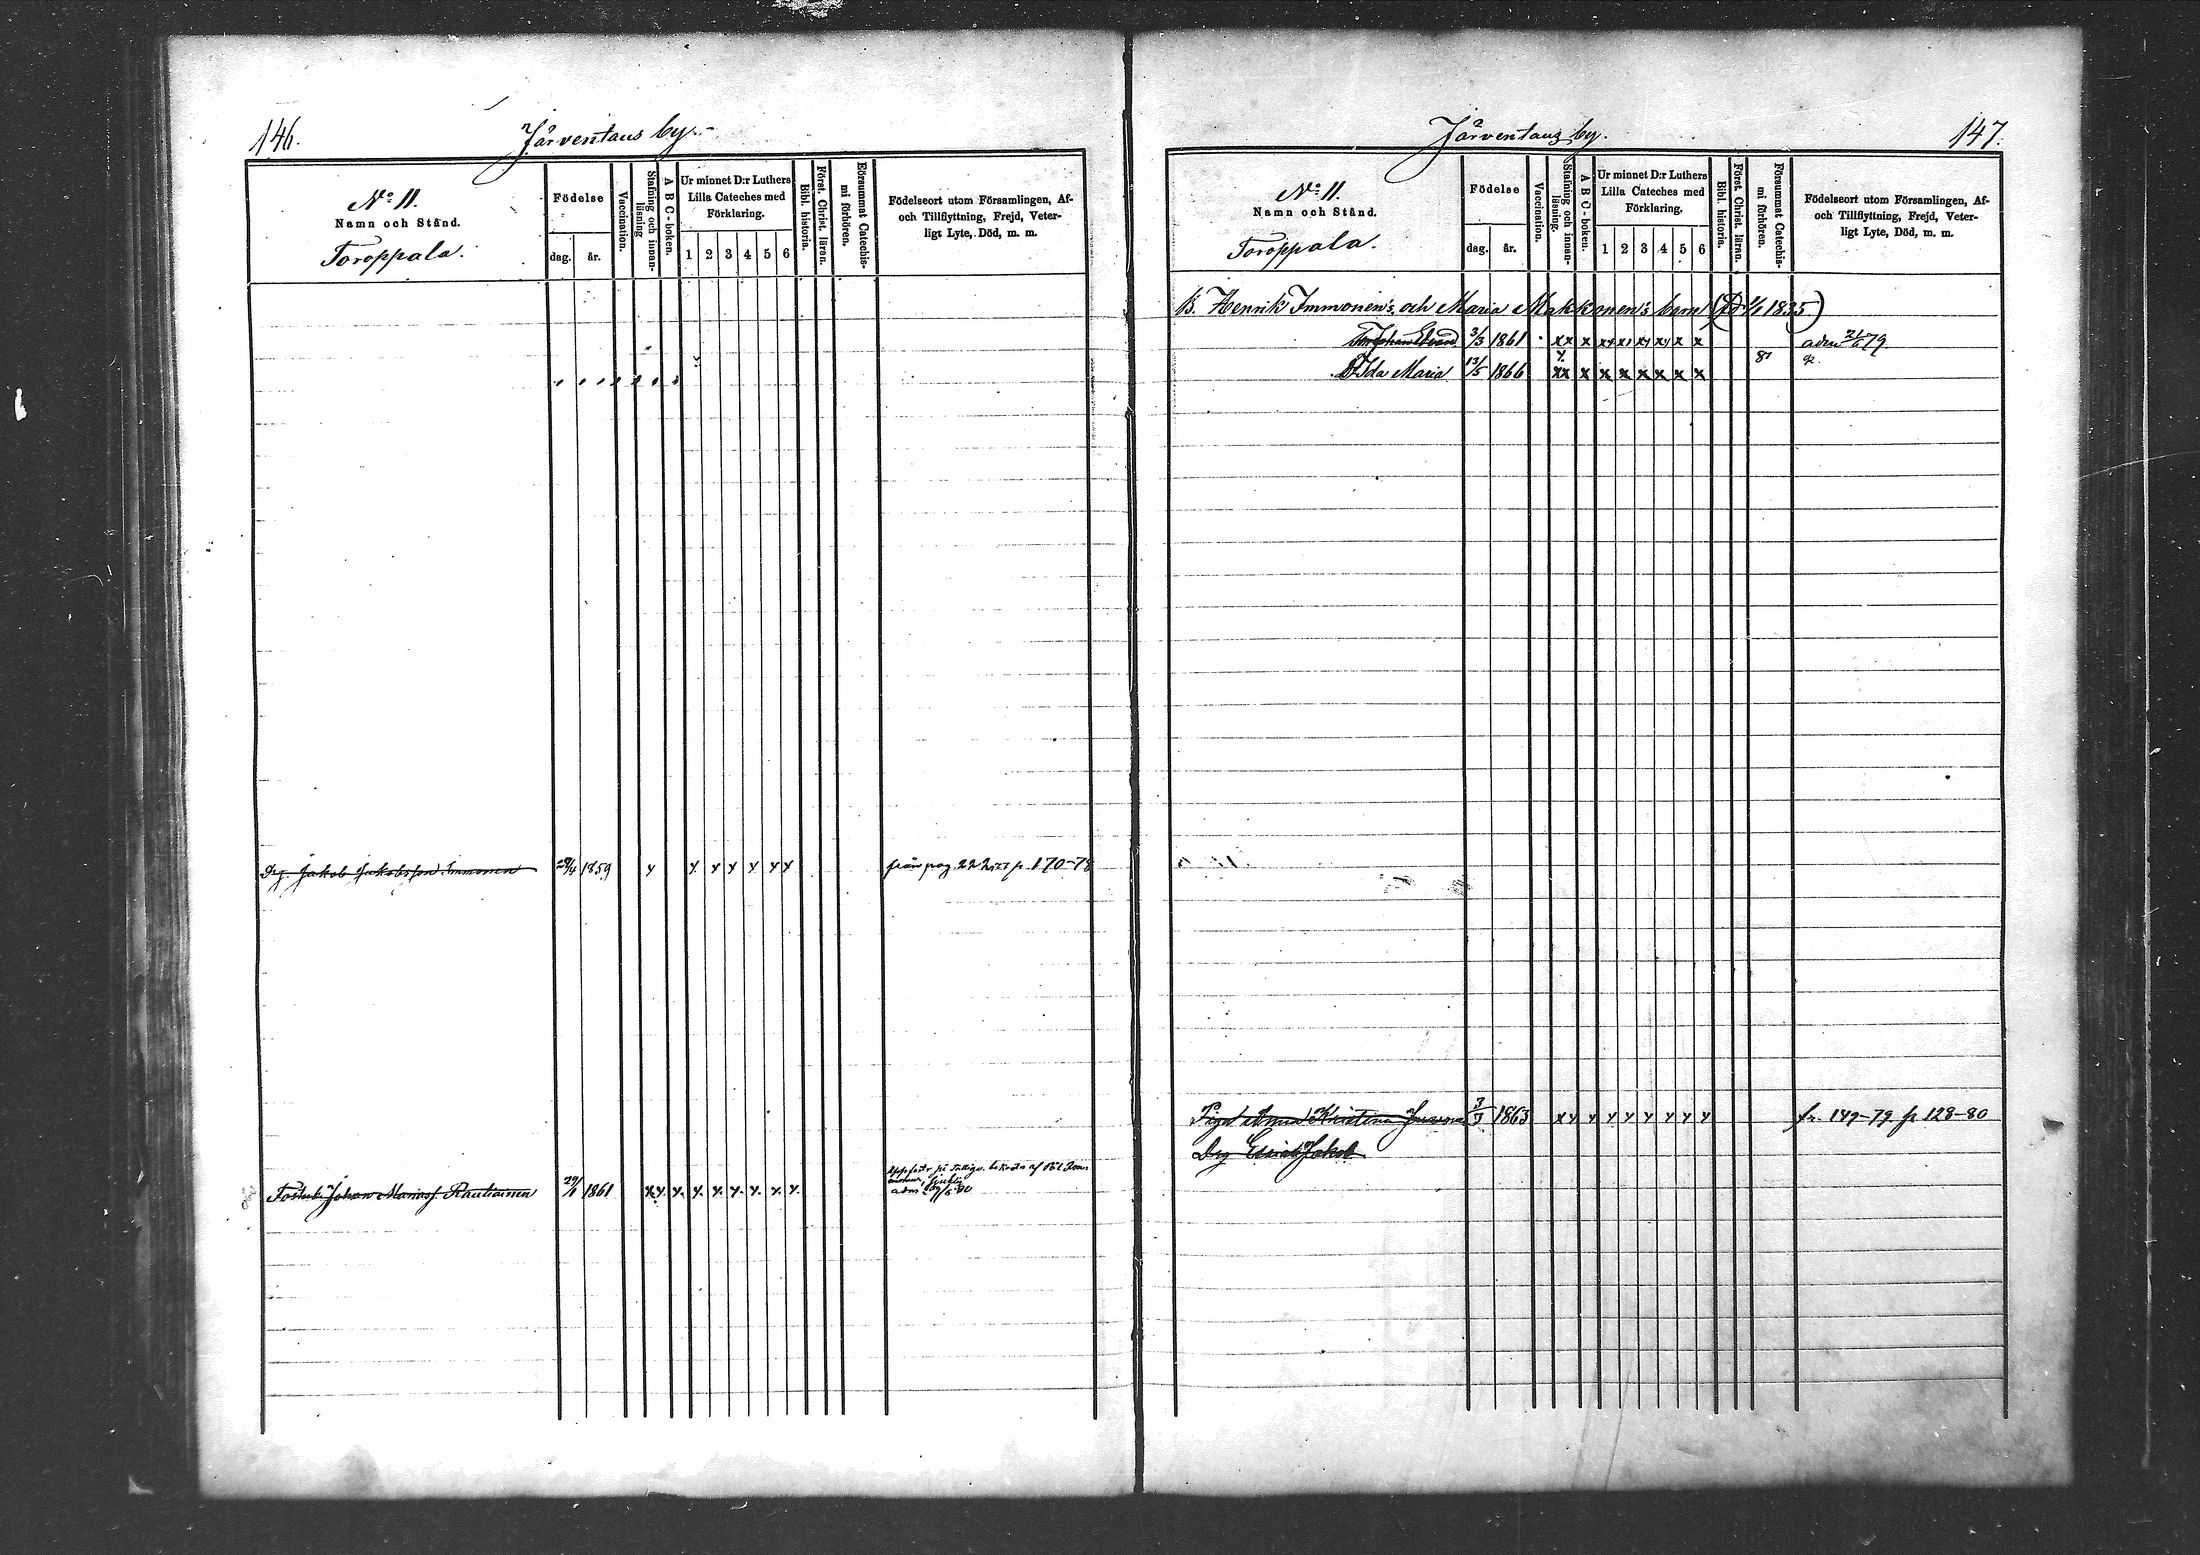 146.
Järventaus by.
No 11.
Namn och Stånd.
Toroppala.
Födelse
dag.
år.
Vaccination.
Stafning och innan-
läsning
A B C-boken.
Ur minnet D:r Luthers
Lilla Cateches med
Förklaring.
1 2 3 4 5 6
Bibl. historia.
Först. Christ. läran.
Försummat Catechis-
mi förhören.
Födelseort utom Församlingen, Af-
och Tillflyttning, Frejd, Veter-
ligt Lyte, Död, m. m.
Drg. Jakob Jakobsson Immonen 28/4 1859 från pag. 222 170-78
adm
Johan Mariass. Rautiainen 29/1 1861
147.
Järventaus by.
No 11.
Namn och Stånd.
Toroppala.
Födelse
dag.
år.
Vaccination.
Stafning och innan-
läsning.
A B C-boken.
Ur minnet D:r Luthers
Lilla Cateches med
Förklaring.
1 2 3 4 5 6
Bibl. historia.
Först. Christ. läran.
Försummat Catechis-
mi förhören.
Födelseort utom Församlingen, Af-
och Tillflyttning, Frejd, Veter-
ligt Lyte, Död, m. m.
B. Henrik Immonen's och Maria Makkonen's barn 1835)
Johan Edvard 3/3 1861 x x x x x x x x x adm 79
D. Ida Maria 13/5 1866 x x x x x x x x x 81
Piga Anna Kristina 3/3 1863 fr. 149-79. p 128-80
Drg Jakob